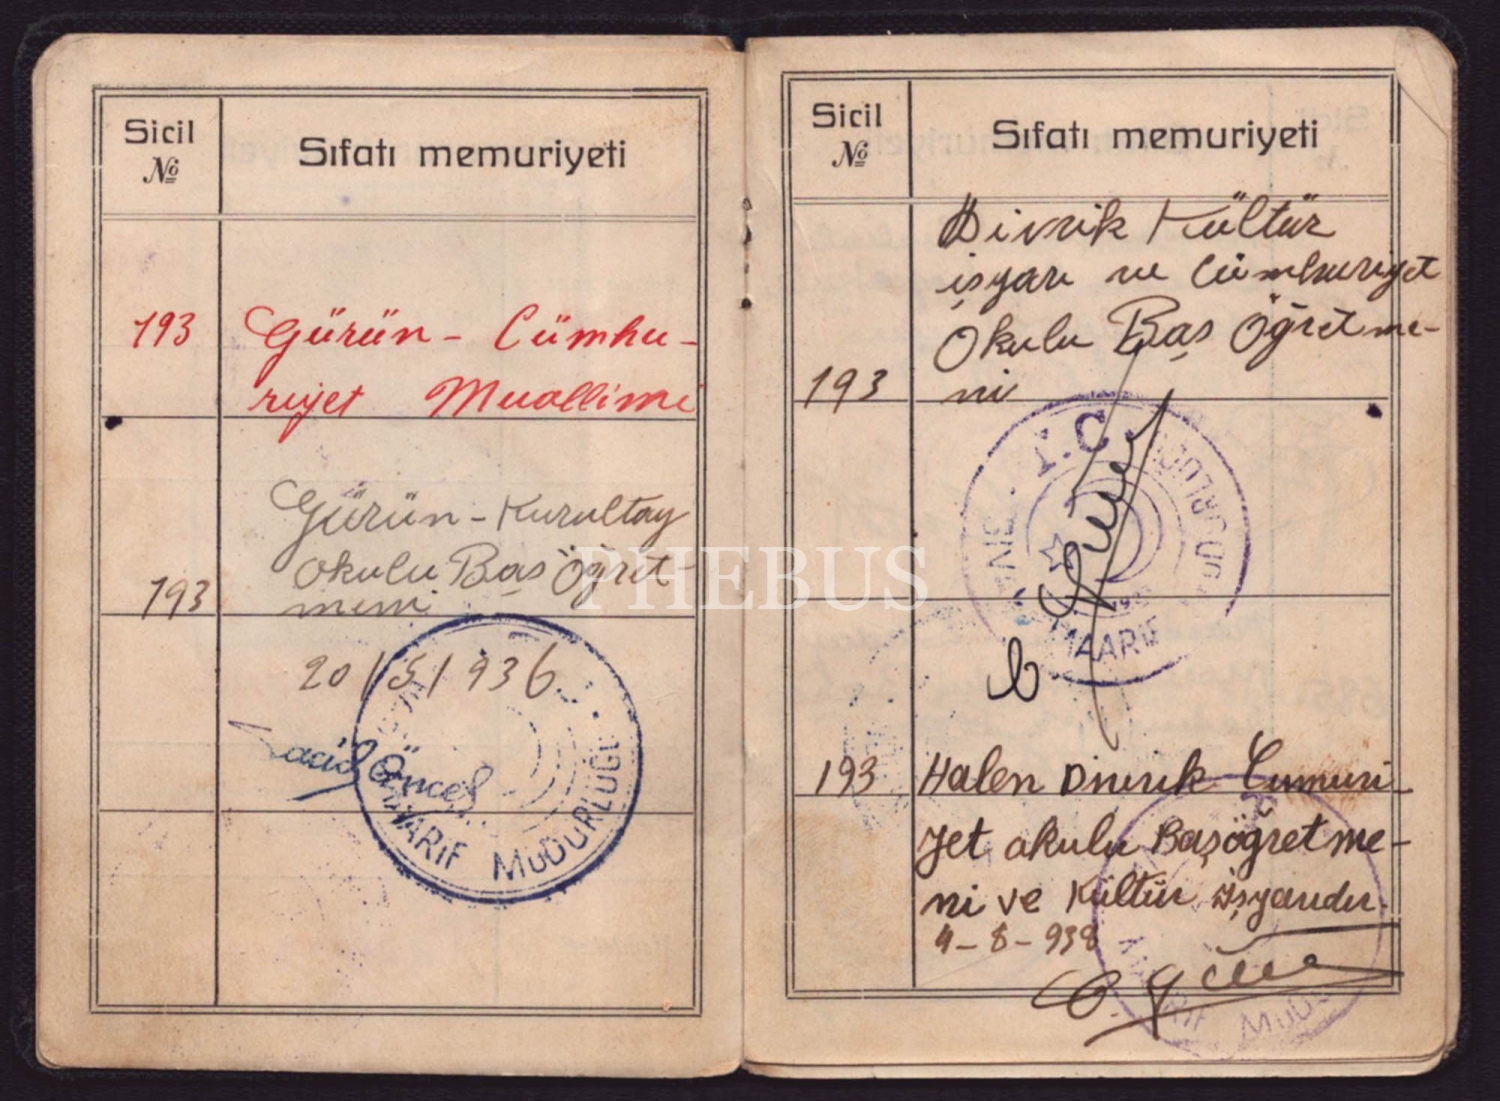 Sicil
№
Sıfatı memuriyeti
193
Gürün - Cümhu-
riyet Muallimi
Gürün - Kurultay
okulu Baş Öğret-
193
meni
20/5/936
Öncel
MAARİF MÜDÜRLÜĞÜ
Sicil
№
Sıfatı memuriyeti
Divrik Kültür
işyarı ve Cümhuriyet
Okulu Baş Öğretme-
193
ni
T.C.
MAARİF
193
Halen Divrik Cumuri
yet okulu Başöğretme-
ni ve Kültür işyarıdır.
4-8-938
PHEBUS